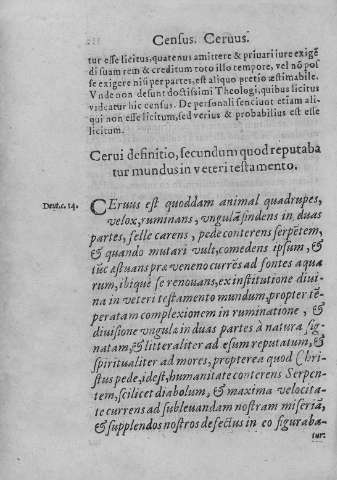 Census. Ceruus.
tur esse licitus, quatenus amittere & priuari iure exigē
di suam rem & creditum toto illo tempore, vel nō pos
se exigere nisi per partes, est aliquo pretio æstimabile.
Vnde non desunt doctissimi Theologi, quibus licitus
videatur hic census. De personali senciunt etiam ali-
qui non esse licitum, sed verius & probabilius est esse
licitum.
Cerui definitio, secundum quod reputaba
tur mundus in veteri testamento.
Deut.c.14.
CEruus est quoddam animal quadrupes,
velox, ruminans, vngulā findens in duas
partes, felle carens, pede conterens serpētem,
& quando mutari vult, comedens ipsum, &
tūc æstuans præ veneno currēs ad fontes aqua
rum, ibique se renouans, ex institutione diui-
na in veteri testamento mundum, propter tē-
peratam complexionem in ruminatione, &
diuisione vngula in duas partes à natura sig-
natam, & litteraliter ad esum reputatum, &
spiritualiter ad mores, propterea quod Chri-
stus pede, id est, humanitate conterens Serpen-
tem, scilicet diabolum, & maxima velocita-
te currens ad subleuandam nostram miseriā,
& supplendos nostros defectus in eo figuraba-
tur.